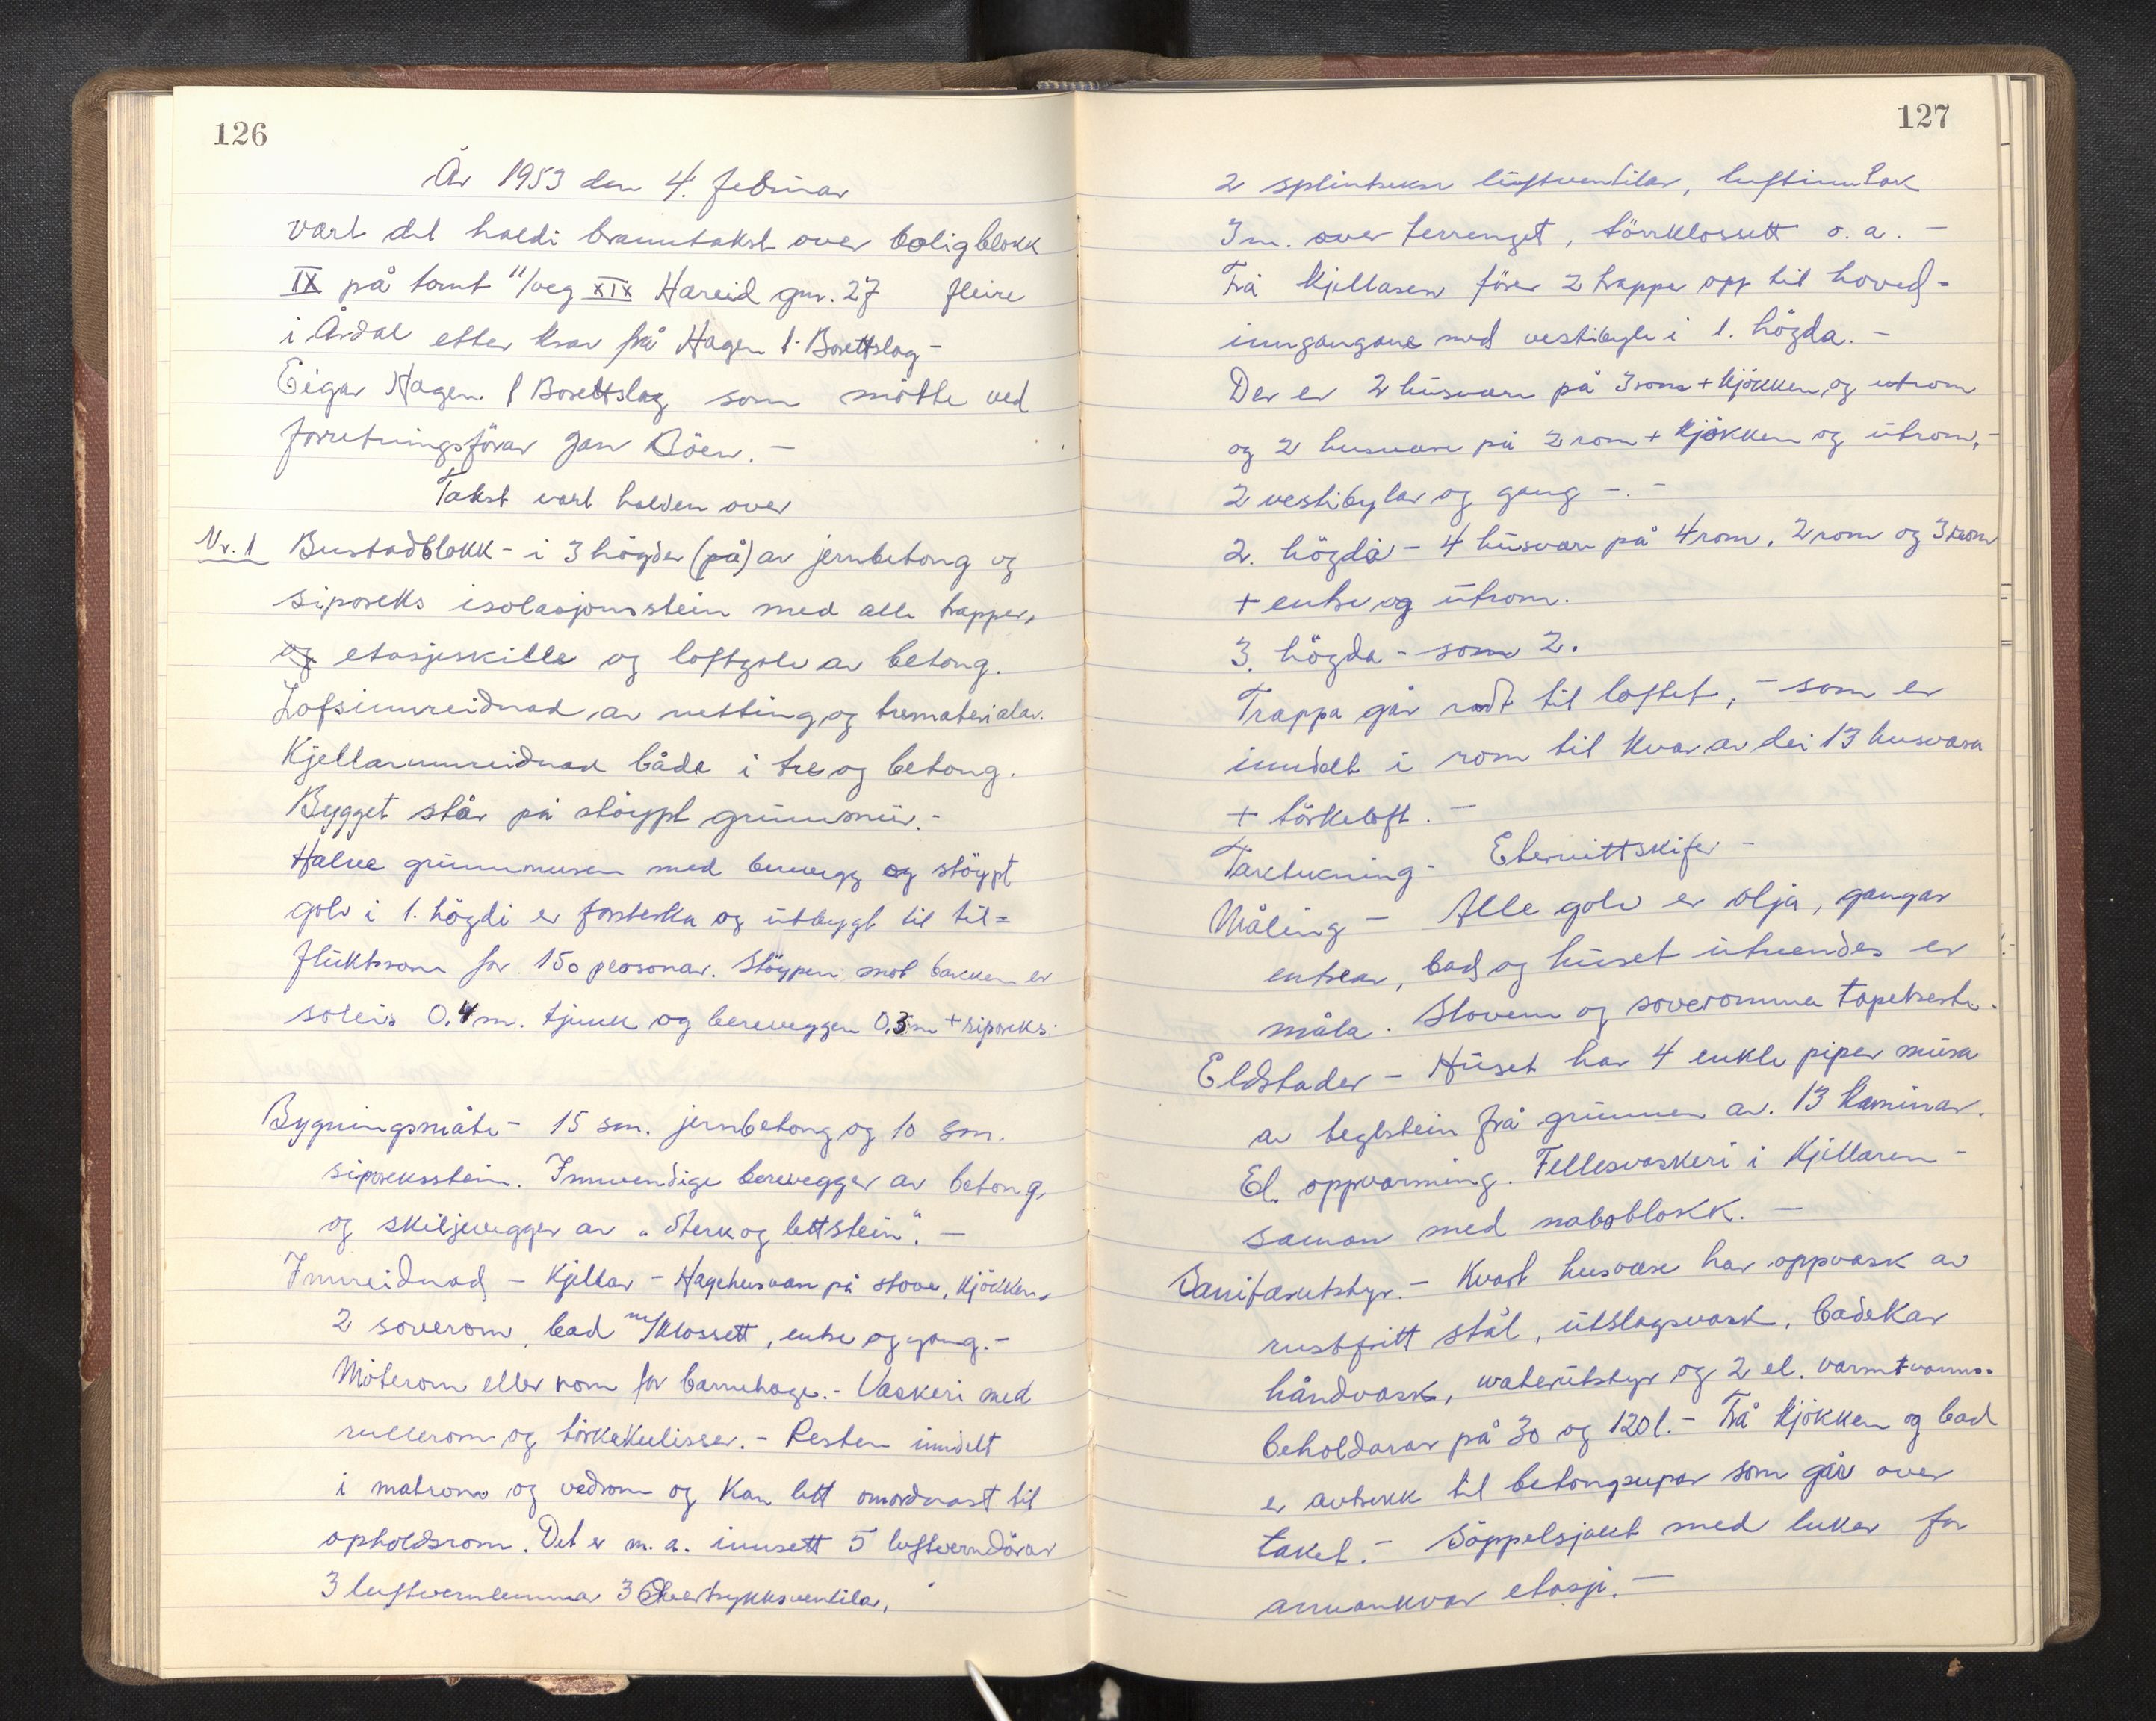 126
År 1953 den 4. februar
vart det haldi branntakst over boligblokk
IX på tomt 11/veg XIX Hareid gnr. 27 fleire
i Årdal etter krav frå Hagen 1. Borettslag -
Eigar Hagen 1 Borettslag som møtte ved
forretningsförar Jan Böen. -
Takst vart halden over
Nr. 1 Bustadblokk - i 3 högder (på) av jernbetong og
siporeks isolasjonsstein med alle trapper,
og etasjeskille og loftgolv av betong.
Loftsinnreidnad av netting og trematerialar.
Kjellarinnreidnad både i tre og betong.
Bygget står på støypt grunnmur. -
Halve grunnmuren med berevegg og støypt
golv i 1. högdi er forsterka og utbygt til til=
fluktsrom for 150 personar. Støypen mot bakken er
soleis 0.4 m. tjukk og bereveggen 0.3m + siporeks.
Bygningsmåte - 15 sm. jernbetong og 10 sm.
siporeksstein. Innvendige berevegger av betong,
og skiljevegger av "Sterk og lettstein". -
Innreidnad - Kjellar - Hagehusvære på stove, kjökken,
2 soverom, bad m/klossett, entre og gang. -
Möterom eller rom for barnehage. - Vaskeri med
rullerom og törkekulisser. - Resten inndelt
i matrom og vedrom og kan lett omordnast til
opholdsrom. Det er m. a. innsett 5 luftverndörar
3 luftvernlemmar 3 Overtrykksventilar,
127
2 splintsikre luftventilar, luftinntak
3m. over terrenget, törrklossett o. a. -
Frå kjellaren förer 2 trapper opp til hoved-
inngangane med vestibyle i 1. högda. -
Der er 2 husvære på 3 rom + kjökken og utrom
og 2 husvære på 2 rom + kjökken og utrom, -
2 vestibylar og gang -. -
2. högda - 4 husvære på 4 rom, 2 rom og 3 rom
+ entre og utrom.
3. högda - som 2.
Trappa går rodt til loftet, - som er
inndelt i rom til kvar av dei 13 husværa
+ törkeloft. -
Taktekning - Eternittskifer -
Måling - Alle golv er olja, gangar
entrear, bad og huset utvendes er
måla. Stovene og soveromma tapetserte.
Eldstader - Huset har 4 enkle piper mura
av teglstein frå grunnen av. 13 kaminar.
El. oppvarming. Fellesvaskeri i kjellaren -
saman med naboblokk. -
Sanitærutstyr. - Kvart husvære har oppvask av
rustfritt stål, utslagsvask, badekar
håndvask, waterutstyr og 2 el. varmtvanns=
beholdarar på 30 og 120 l. - Frå kjökken og bad
er avtrekk til betongpipar som går over
taket. - Söppelsjakt med luker for
annankvar etasji. -